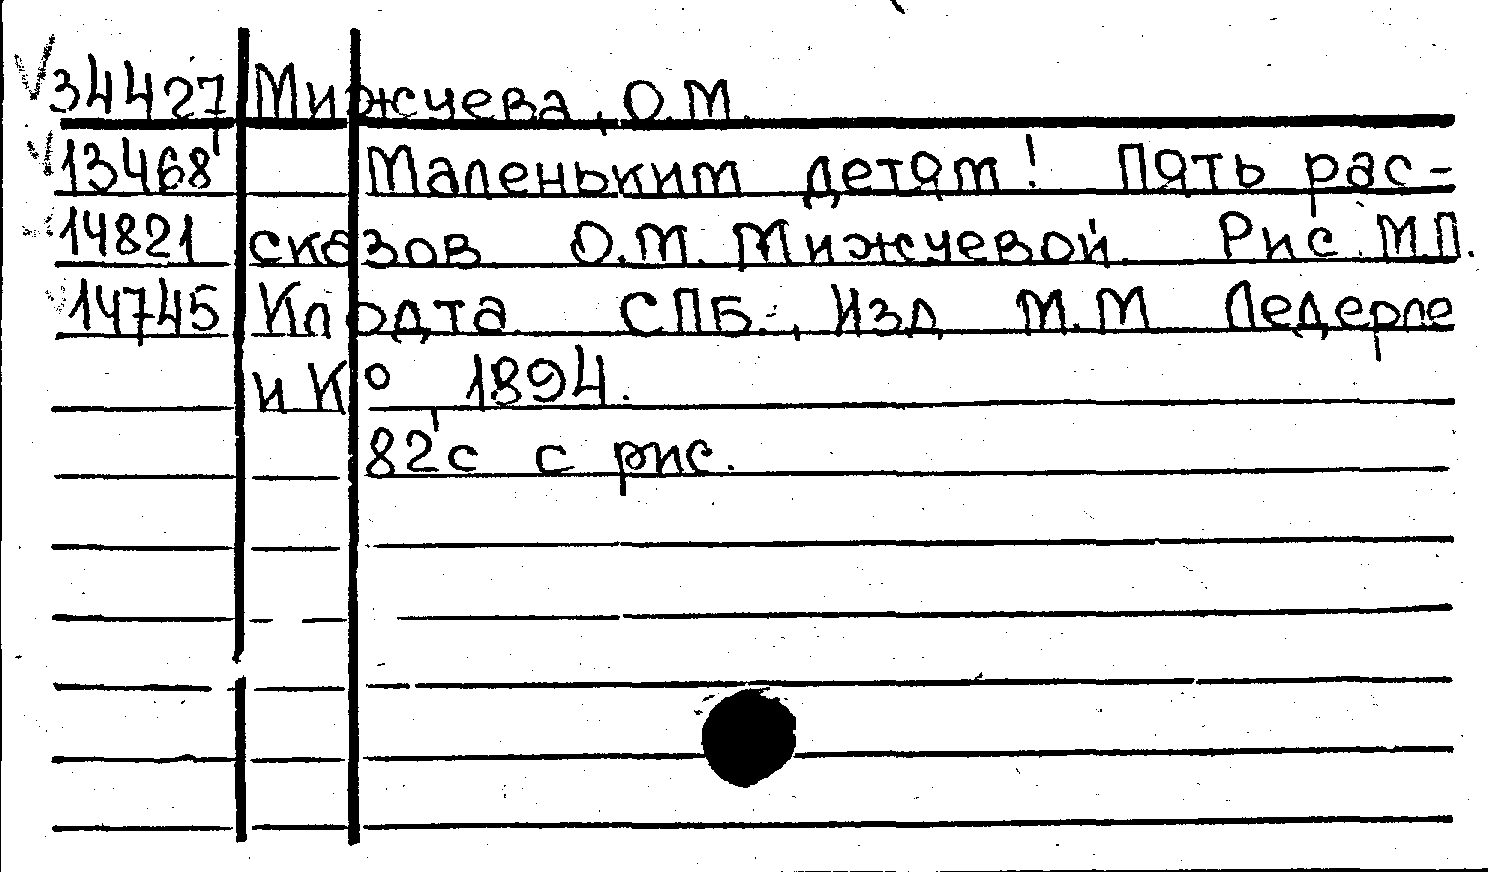 34427 Мижуева, О.М.
13468 Маленьким детям! Пять рас-
14821 сказов О.М. Мижуевой. Рис. М.П.
14745 Клодта СПБ., Изд М.М Ледерле
и К° 1894.
82 с с рис.